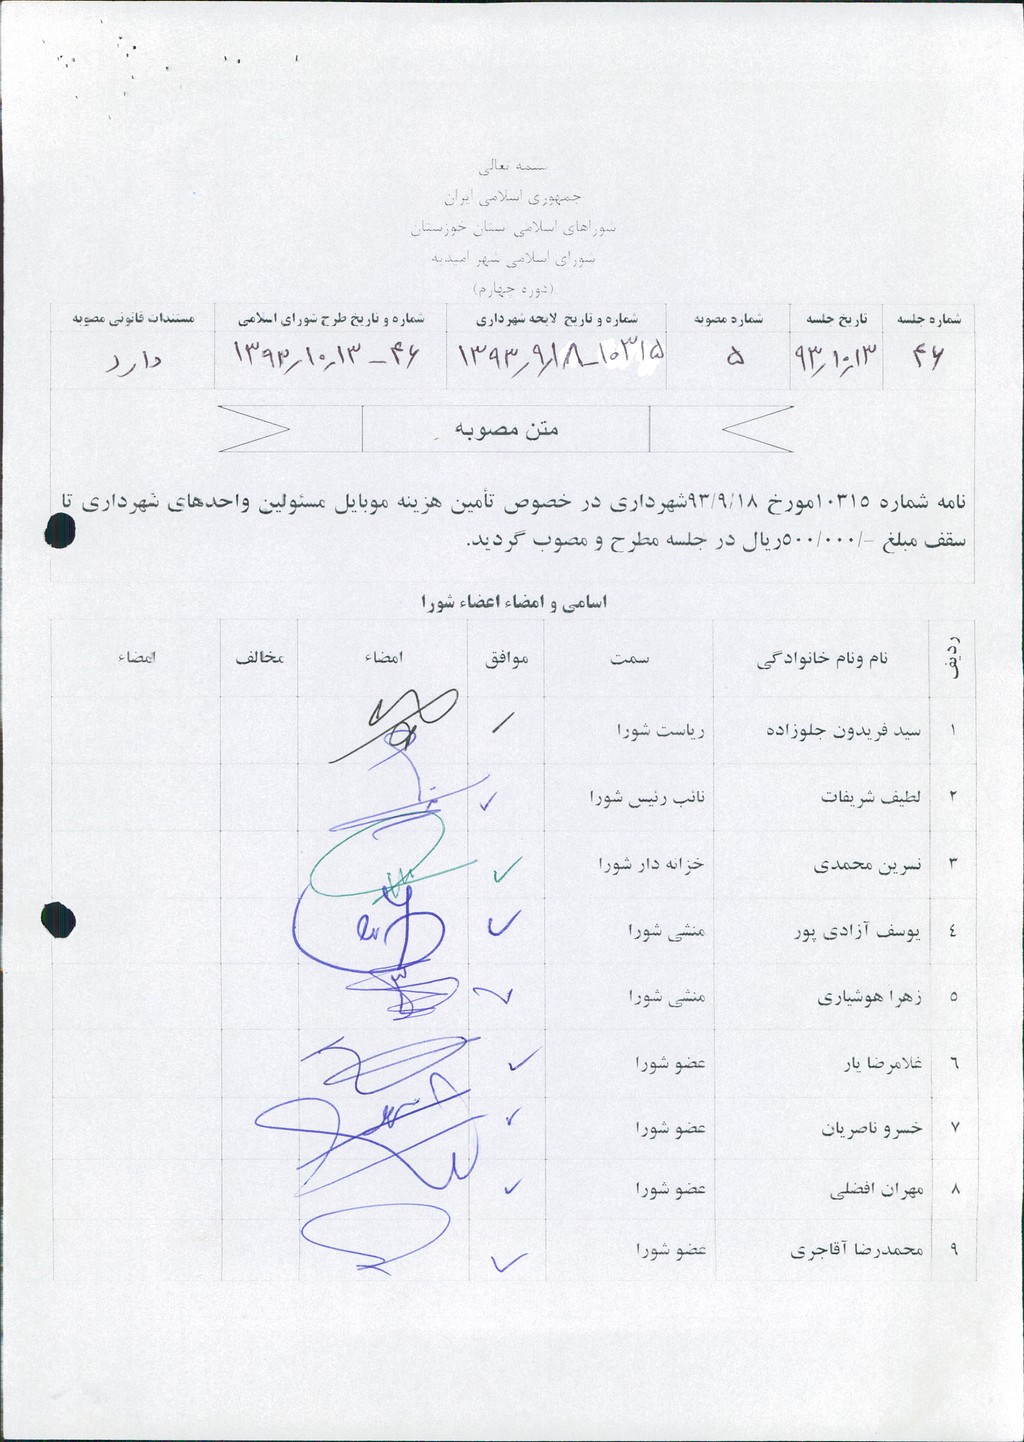 بسمه تعالی
جمهوری اسلامی ایران
شوراهای اسلامی ستان خوزستان
شورای اسلامی شهر امیدیه
(دوره چهارم)
شماره جلسه تاریخ جلسه شماره مصوبه شماره و تاریخ لایحه شهرداری شماره و تاریخ طرح شورای اسلامی مستندات قانونی مصوبه
۴۶ ۹۳/۱۰/۱۳ ۵ ۱۰۳۱۵_۱۳۹۳/۹/۱۸ ۴۶_۱۳۹۳/۱۰/۱۳ دارد
متن مصوبه
نامه شماره ۱۰۳۱۵مورخ ۹۳/۹/۱۸شهرداری در خصوص تأمین هزینه موبایل مسئولین واحدهای شهرداری تا
سقف مبلغ -/۵۰۰/۰۰۰ریال در جلسه مطرح و مصوب گردید.
اسامی و امضاء اعضاء شورا
ردیف نام ونام خانوادگی سمت موافق امضاء مخالف امضاء
۱ سید فریدون جلوزاده ریاست شورا
۲ لطیف شریفات نائب رئیس شورا ✓
۳ نسرین محمدی خزانه دار شورا ✓
٤ یوسف آزادی پور منشی شورا ✓
۵ زهرا هوشیاری منشی شورا ✓
٦ غلامرضا یار عضو شورا ✓
۷ خسرو ناصریان عضو شورا ✓
۸ مهران افضلی عضو شورا ✓
۹ محمدرضا آقاجری عضو شورا ✓